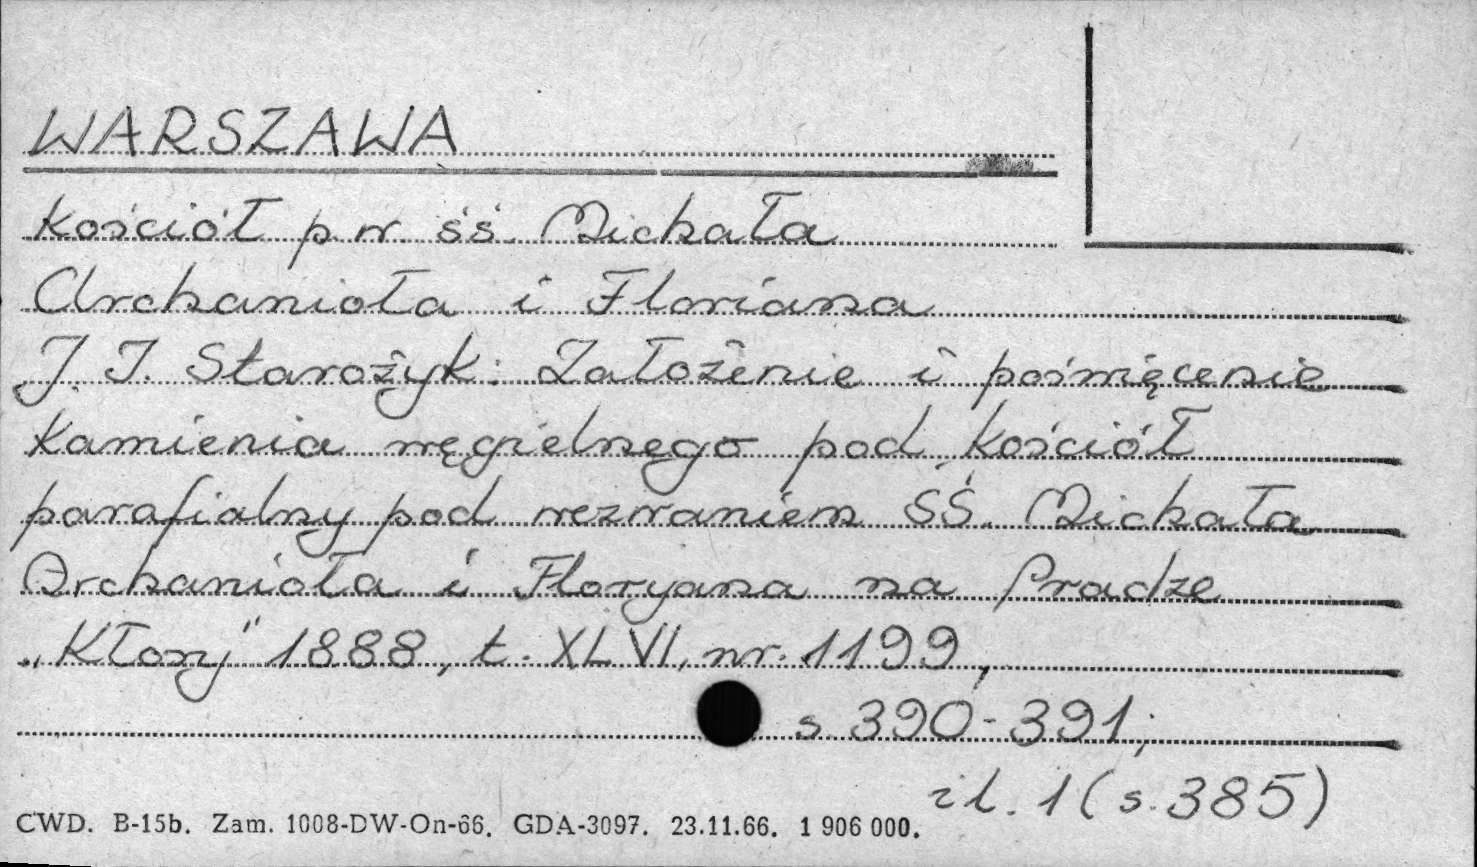 WARSZAWA
Kościół p.w. śś. Michała
Archanioła i Floriana
J. J. Starożyk: Założenie i poświęcenie
kamienia węgielnego pod kościół
parafialny pod wezwaniem ŚŚ. Michała
Archanioła i Floryana na Pradze
„Kłosy" 1888, t. XLVI, nr. 1199,
s. 390-391;
il. 1 (s. 385)
CWD. B-15b. Zam. 1008-DW-On-66. GDA-3097. 23.11.66. 1 906 000.